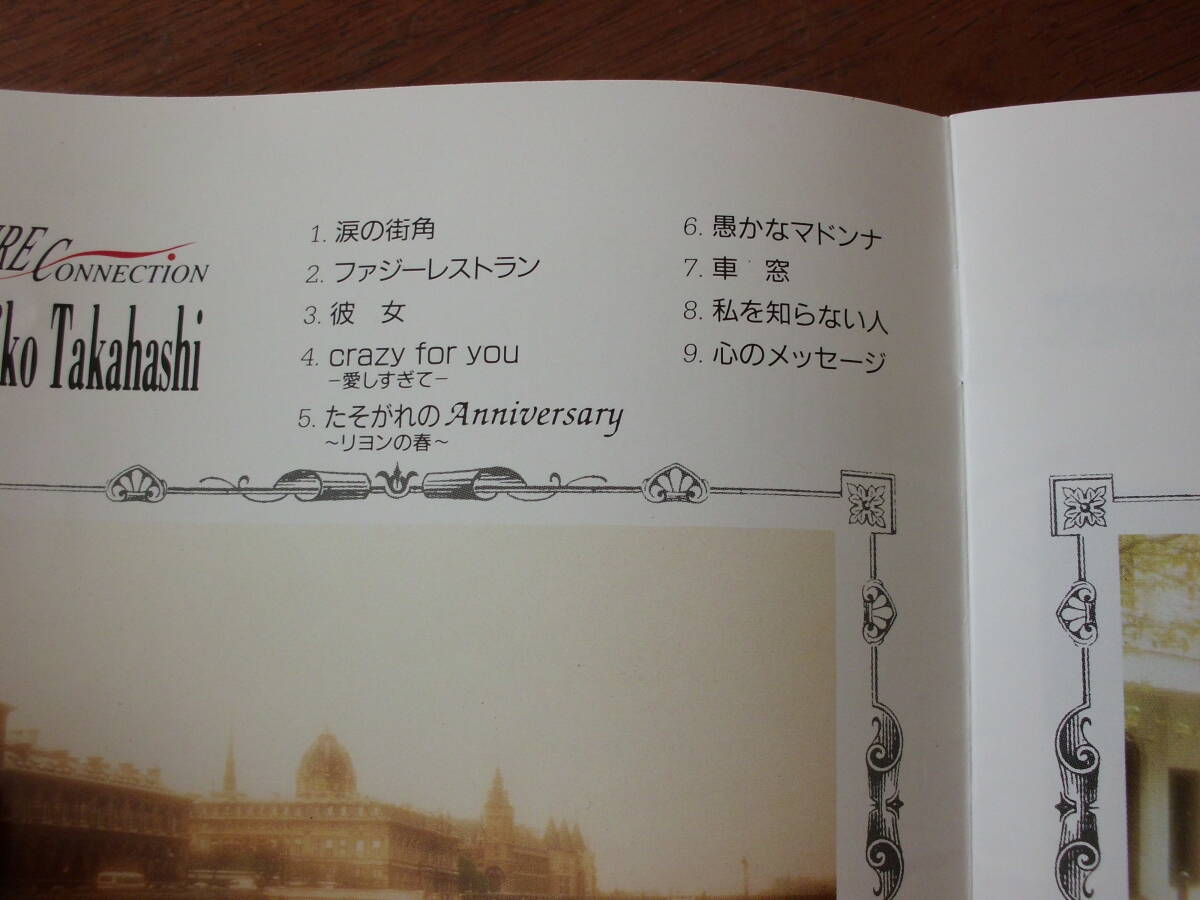 CONNECTION
Takahashi
1. 涙の街角
2. ファジーレストラン
3. 彼 女
4. crazy for you
−愛しすぎて−
5. たそがれのAnniversary
〜リヨンの春〜
6. 愚かなマドンナ
7. 車 窓
8. 私を知らない人
9. 心のメッセージ